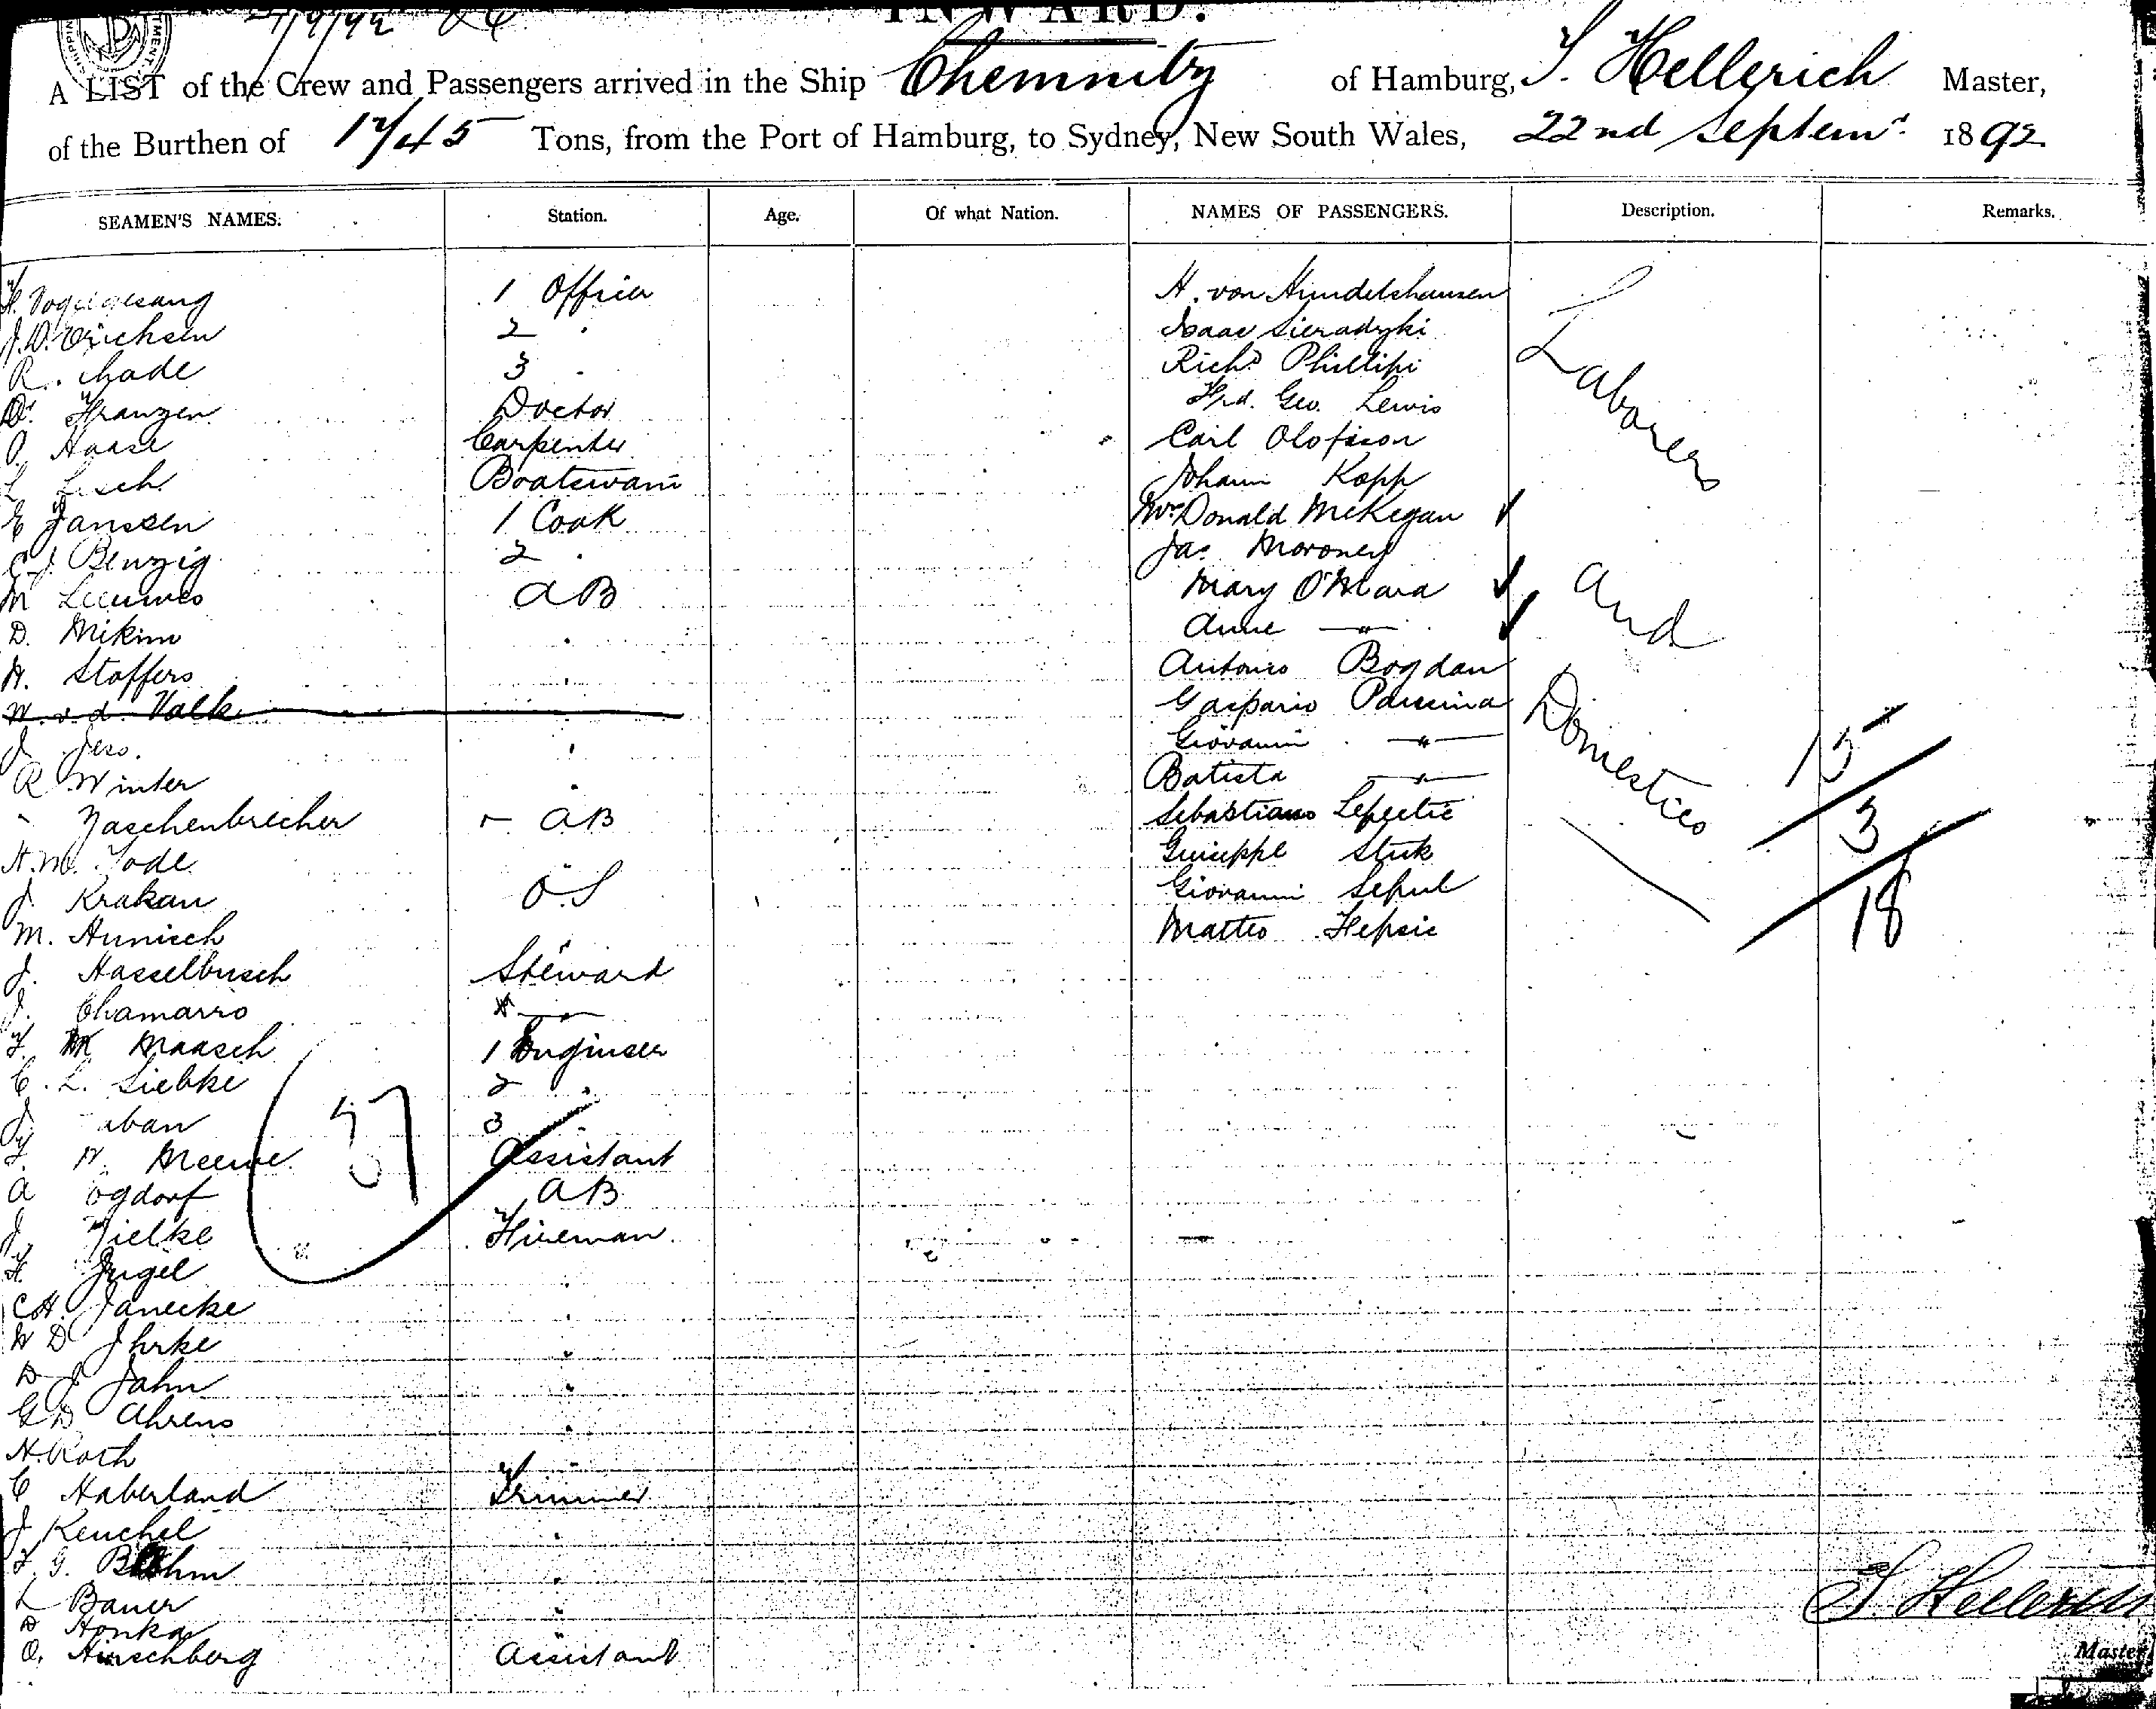 INWARD.
A LIST of the Crew and Passengers arrived in the Ship Chemnitz of Hamburg, Hellerich Master,
of the Burthen of Tons, from the Port of Hamburg, to Sydney, New South Wales, 22nd Septemr 1892
SEAMEN'S NAMES. Station. Age. Of what Nation. NAMES OF PASSENGERS. Description. Remarks.
1 Officer H. von Hundelshausen
J. D. Erichsen 2 " Isaac Sieradzki
R. 3 " Richd Phillipi
Dr Franzen Doctor Geo. Lewis
O. Haase Carpenter Carl Olofsson
L Boatswain Johann Kopp
E Janssen 1 Cook Mrs Donald McKegan
C. J. Benzig 2 " Jas Moroney
M AB Mary O'Mara
D. Mikim " Anne "
H. Stoffers " Antonio Bogdan
W. v. d. Valk Gasparo
J Jess. " Giovanni "
R Winter " Batista "
Zaschenbrecher AB Sebastiano
H. M. Tode Giuseppe Stuk
J. Krakau O.S Giovanni Sepul
M. Hunisch " Matteo
J. Hasselbusch Steward
J. Chamarro "
F. Maasch 1 Engineer
C. L. Siebke 2 "
J 3 "
F. W. Meewe Assistant
A AB
J. Zielke Fireman
H. "
C H. Janecke "
W D Ihrke "
D J Jahn "
G D Ahrens "
H. Roth "
C Haberland Trimmer
J Keuchel "
F. G. Böhm "
L Bauer "
D Honka "
O. Hirschberg Assistant
Laborers
and
Domestics
15
3
18
37
Hellerich
Master